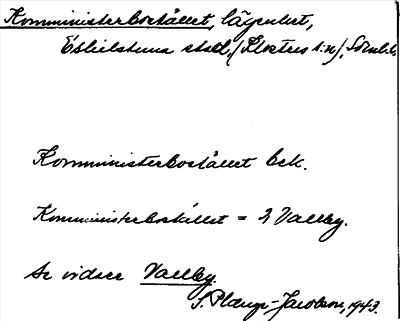 Komministerbostället, lägenhet,
Eskilstuna stad, (Klosters s:n), Södml.
Komministerbostället bek.
Komministerbostället = 2 Vallby.
Se vidare Vallby.
1943.